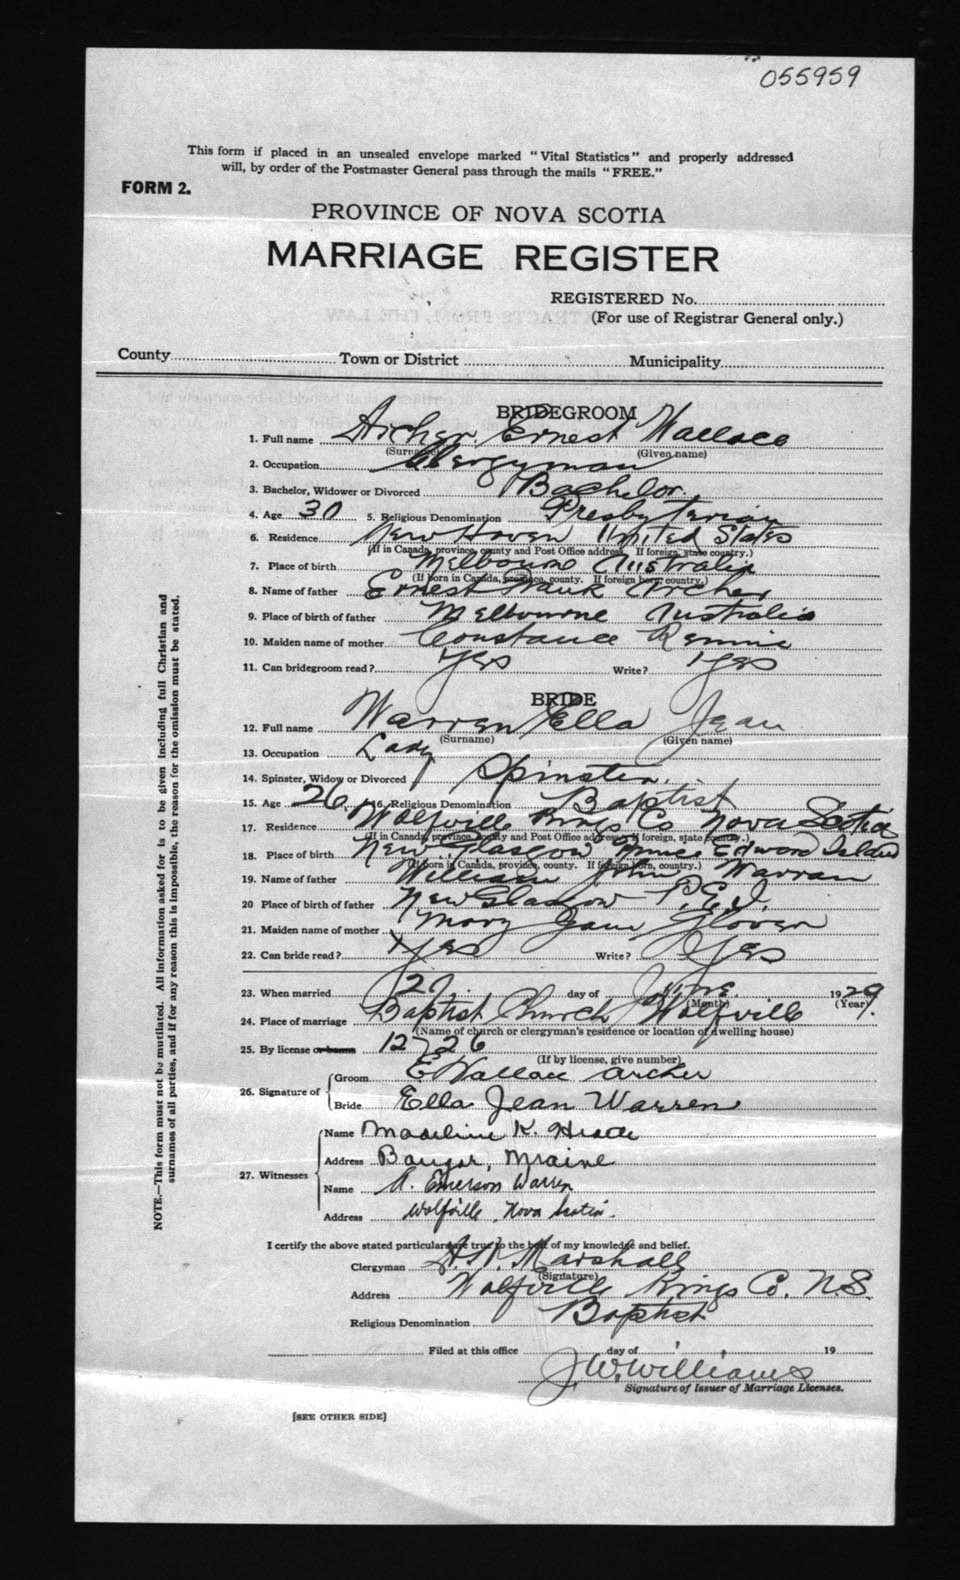 055959
This form if placed in an unsealed envelope marked "Vital Statistics" and properly addressed
will, by order of the Postmaster General pass through the mails "FREE."
FORM 2.
PROVINCE OF NOVA SCOTIA
MARRIAGE REGISTER
REGISTERED No.
(For use of Registrar General only.)
County Town or District Municipality
BRIDEGROOM
1. Full name Archer Ernest Wallace
(Surname) (Given name)
2. Occupation Clergyman
3. Bachelor, Widower or Divorced Bachelor
4. Age 30 5. Religious Denomination Presbyterian
6. Residence New Haven United States
(If in Canada, province, county and Post Office address. If foreign, state country.)
7. Place of birth Melbourne Australia
(If born in Canada, province, county. If foreign born, country.)
8. Name of father Ernest Frank Archer
9. Place of birth of father Melbourne Australia
10. Maiden name of mother Constance Rennie
11. Can bridegroom read? Yes Write? Yes
BRIDE
12. Full name Warren Ella Jean
(Surname) (Given name)
13. Occupation Lady
14. Spinster, Widow or Divorced Spinster.
15. Age 26 16. Religious Denomination Baptist
17. Residence Wolfville Kings Co Nova Scotia
(If in Canada, province, county and Post Office address, If foreign, state country.)
18. Place of birth New Glasgow Prince Edward Island
(If born in Canada, province, county. If foreign born, country.)
19. Name of father William John Warran
20 Place of birth of father New Glasgow P.E.I.
21. Maiden name of mother Mary Jane Glover
22. Can bride read? Yes Write? Yes
23. When married 27 day of June 1929.
(Month) (Year)
24. Place of marriage Baptist Church Wolfville
(Name of church or clergyman's residence or location of dwelling house)
25. By license or banns 12726
(If by license, give number)
26. Signature of
Groom E Wallace Archer
Bride Ella Jean Warren
27. Witnesses
Name Madeline K.
Address Bangor, Maine
Name A. Emerson Warren
Address Wolfville, Nova Scotia.
I certify the above stated particulars are true to the best of my knowledge and belief.
Clergyman Marshall
(Signature)
Address Wolfville Kings Co. N.S.
Religious Denomination Baptist
Filed at this office day of 19
J.W. Williams
Signature of Issuer of Marriage Licenses.
[SEE OTHER SIDE]
NOTE.—This form must not be mutilated. All information asked for is to be given including full Christian and
surnames of all parties, and if for any reason this is impossible, the reason for the omission must be stated.